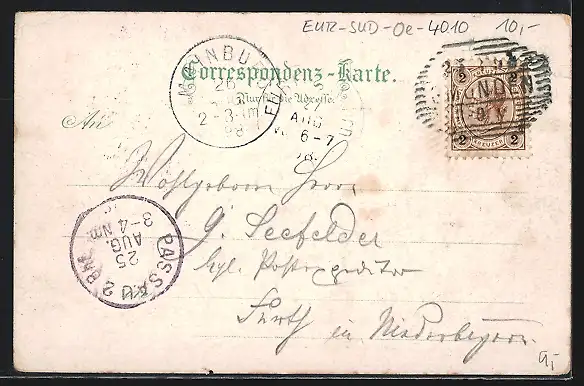 EUR-SUD-Oe-4010 10,-
Correspondenz-Karte.
Nur für die Adresse.
An
MAINBURG
26
2-3 Nm
98
27
AUG
6-7
98.
2 2
GMUNDEN
2 KREUZER 2
PASSAU 2
25
AUG.
3-4 Nm
Wohlgeboren Herrn
G. Seefelder
kgl. Postexpeditor
Furth in Niederbayern.
9,-